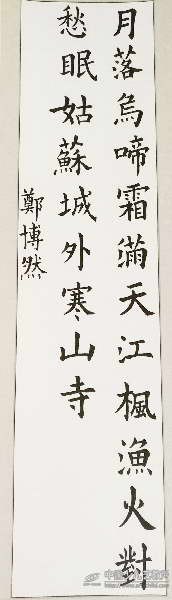 月落烏啼霜滿天江楓漁火對
愁眠姑蘇城外寒山寺
鄭博然